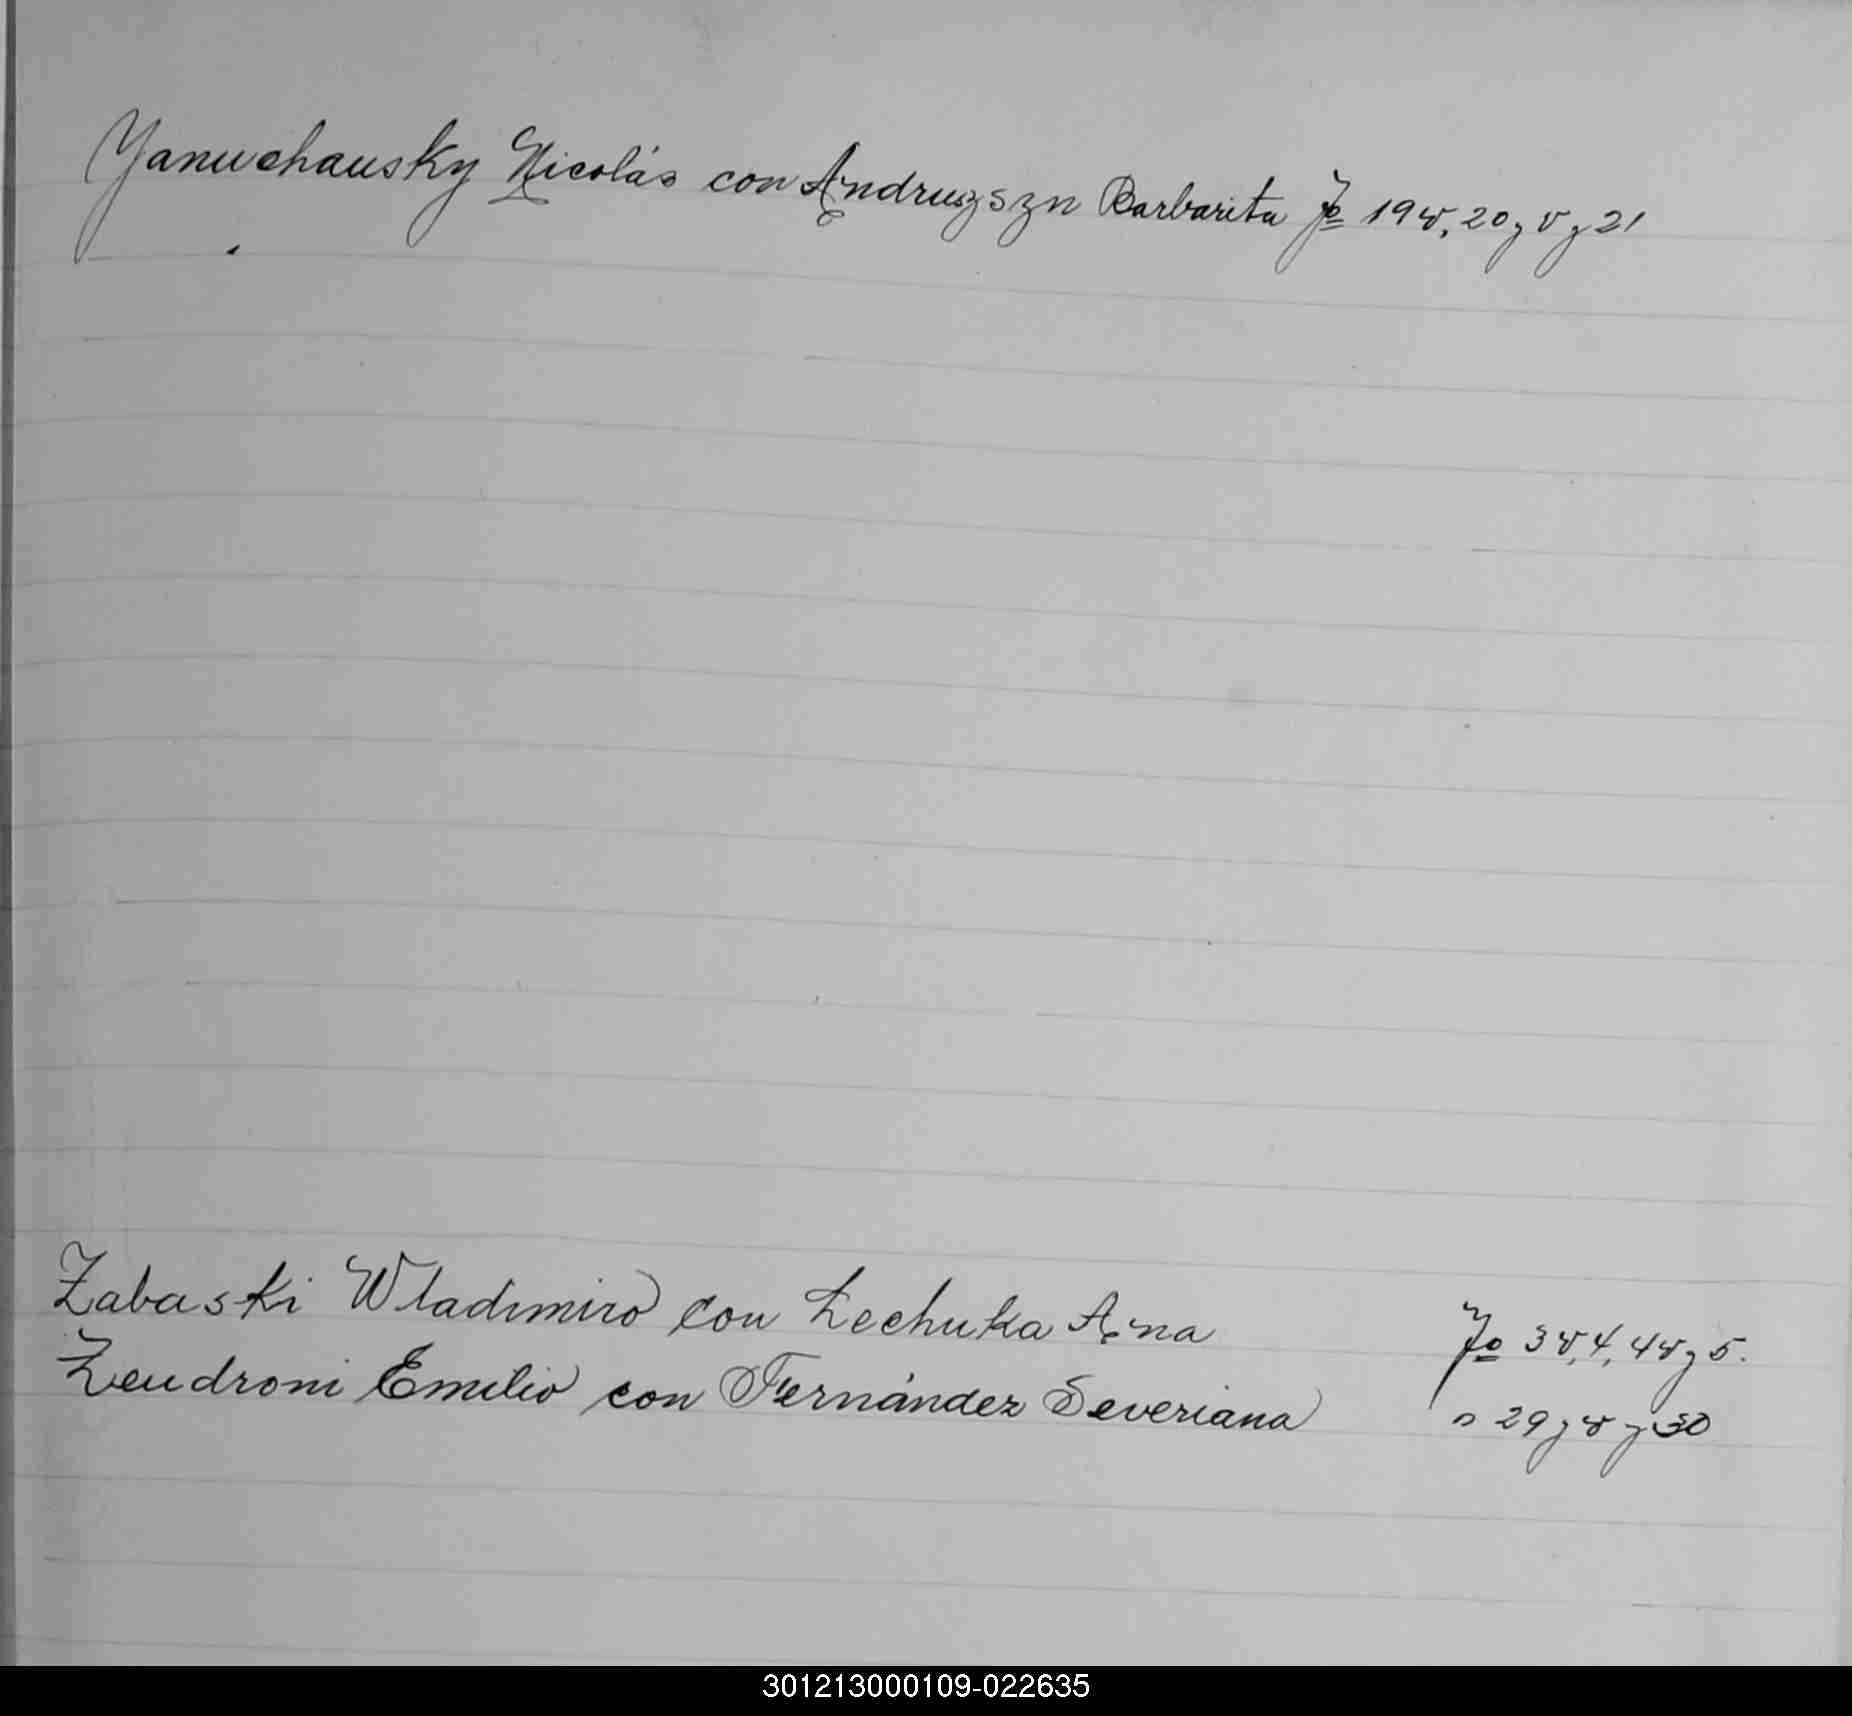 Yanuchausky Nicolás con Andruszszn Barbarita Fo 19v, 20 y v y 21
Zabaski Wladimiro con Lechuka Ana Fo 3v, 4, 4v y 5.
Zendroni Emilio con Fernández Severiana " 29 y v y 30
301213000109-022635